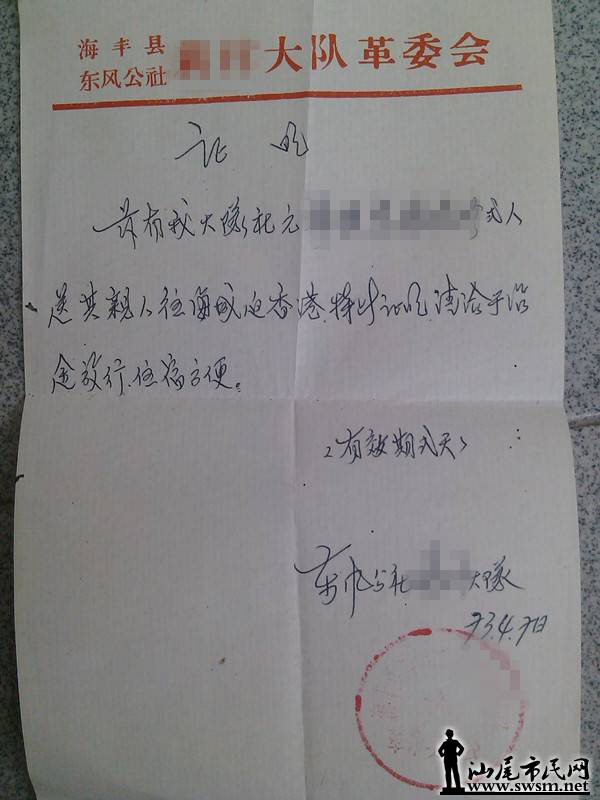 海丰县
东风公社 大队革委会
证明
兹有我大隊社元 弍人
送其親人往海城 香港.特此证明,请给予沿
途放行.住宿方便。
<有效期弍天>
东风公社 大隊
73.4.7日
汕尾市民网
www.swsm.net